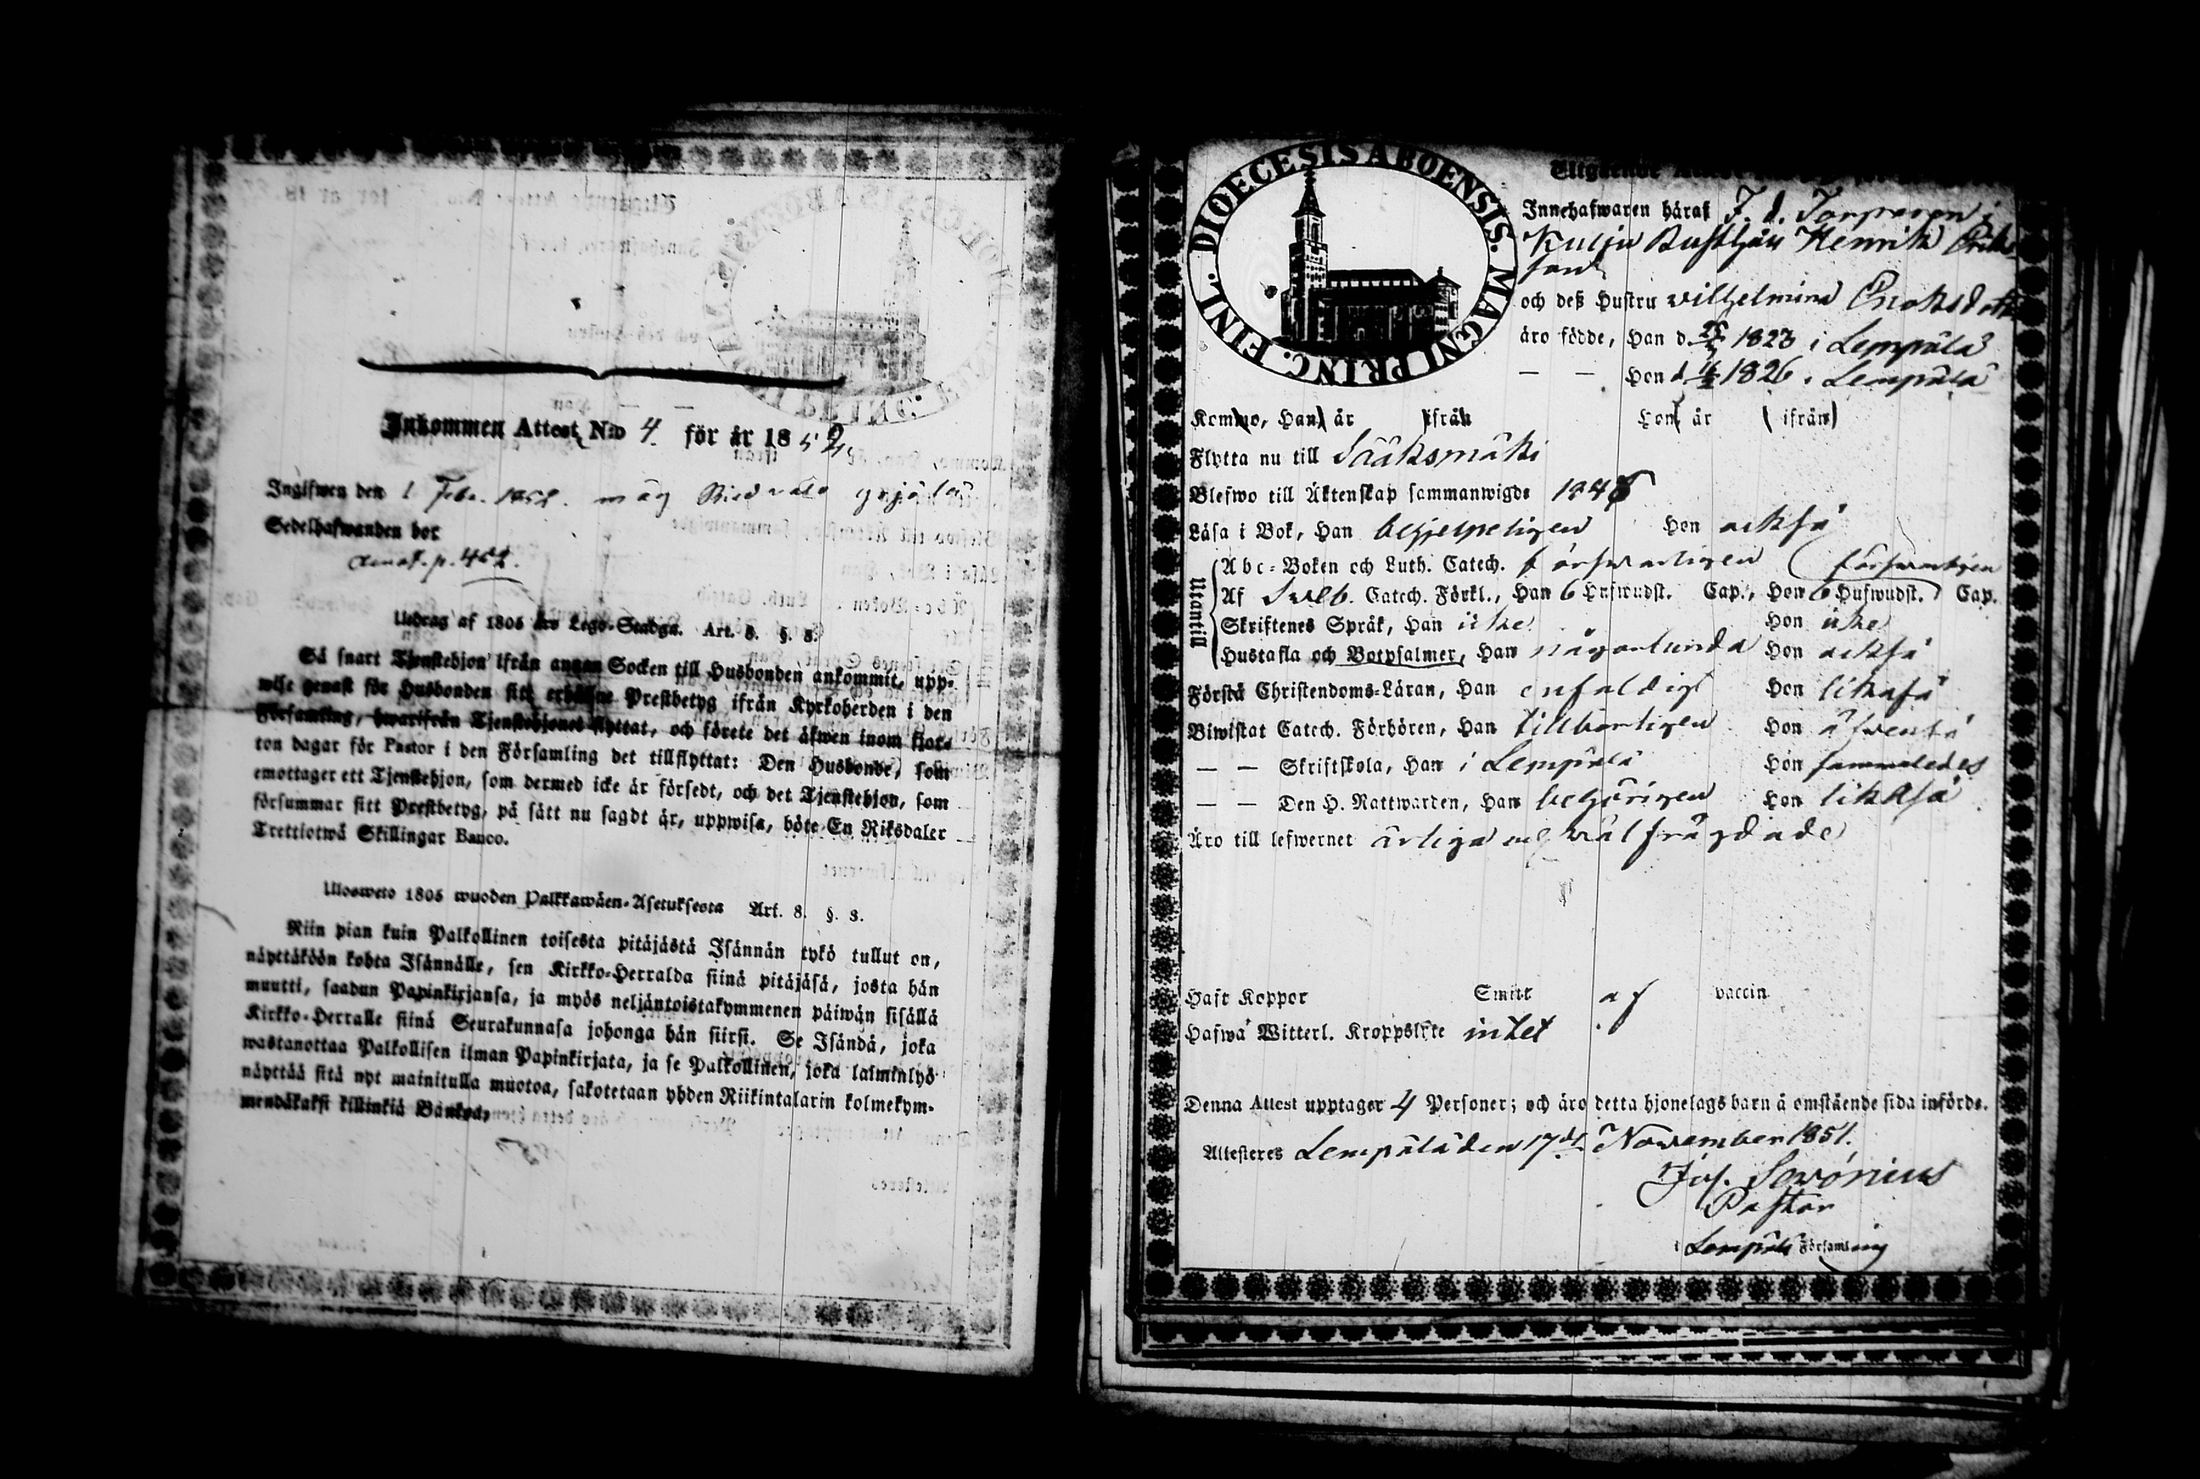 Inkommen Attest, N:o 4 för år 1852
Ingifwen den 1 Febr. 1852.
Sedelhafwanden bor
p. 452.
Utdrag af 1805 års Lego-Stadga. Art. 8. §. 8.
Så snart Tjenstehjon ifrån annan Socken till Husbonden ankommit, upp-
wise genast för Husbonden sitt erhållne Prestbetyg ifrån Kyrkoherden i den
Församling, hwarifrån Tjenstehjonet flyttat, och förete det äfwen inom fjor-
ton dagar för Pastor i den Församling det tillflyttat: Den Husbonde, som
emottager ett Tjenstehjon, som dermed icke är försedt, och det Tjenstehjon, som
försummar sitt Prestbetyg, på sätt nu sagdt är, uppwisa, böte En Riksdaler
Trettiotwå Skillingar Banco.
Ulosweto 1805 wuoden Palkkawäen-Asetuksesta Art. 8. §. 8.
Niin pian kuin Palkollinen toisesta pitäjästä Isännän tykö tullut on,
näyttäköön kohta Isännälle, sen Kirkko-Herralda siinä pitäjäsä, josta hän
muutti, saadun Papinkirjansa, ja myös neljäntoistakymmenen päiwän sisällä
Kirkko-Herralle siinä Seurakunnasa johonga hän siirsi. Se Isändä, joka
wastanottaa Palkollisen ilman Papinkirjata, ja se Palkollinen, joka laiminlyö
näyttää sitä nyt mainitulla muotoa, sakotetaan yhden Riikintalarin kolmekym-
mendäkaksi killinkiä Bankos.
DIOECESIS ABOENSIS. MAGNI PRINC. FINL.
Innehafwaren häraf F. d. Torparen i
Kulju Bustgån Henrik Eriks
son
och deß Hustru Wilhelmina Enoksdotter
äro födde, Han d. 1823 i Lempälä
— — Hon d. 1826 i Lempälä
Komme, Han är ifrån Hon är ifrån
Flytta nu till Sääksmäki
Blefwo till Äktenskap sammanwigde 1846
Läsa i Bok, Han behjelpeligen Hon också
Utantill
Abc-Boken och Luth. Catech. förswarligen förswarligen
Af Sveb. Catech. Förkl., Han 6 Hufwudst. Cap., Hon 6 Hufwudst. Cap.
Skriftenes Språk, Han icke Hon icke
Hustafla och Botpsalmer, Han någorlunda Hon också
Förstå Christendoms-Läran, Han enfaldigt Hon likaså
Biwistat Catech. Förhören, Han tillbörligen Hon äfwenså
— — Skriftskola, Han i Lempälä Hon sammaledes
— — Den H. Nattwarden, Han behörigen Hon likaså
Äro till lefwernet ärliga och wälfrägdade
Haft Koppor Smitt af vaccin
Hafwa Witterl. Kroppslyte intet
Denna Attest upptager 4 Personer; och äro detta hjonelags barn å omstående sida införde.
Attesteres Lempälä den 17de November 1851.
Pastor
i Lempälä Församling